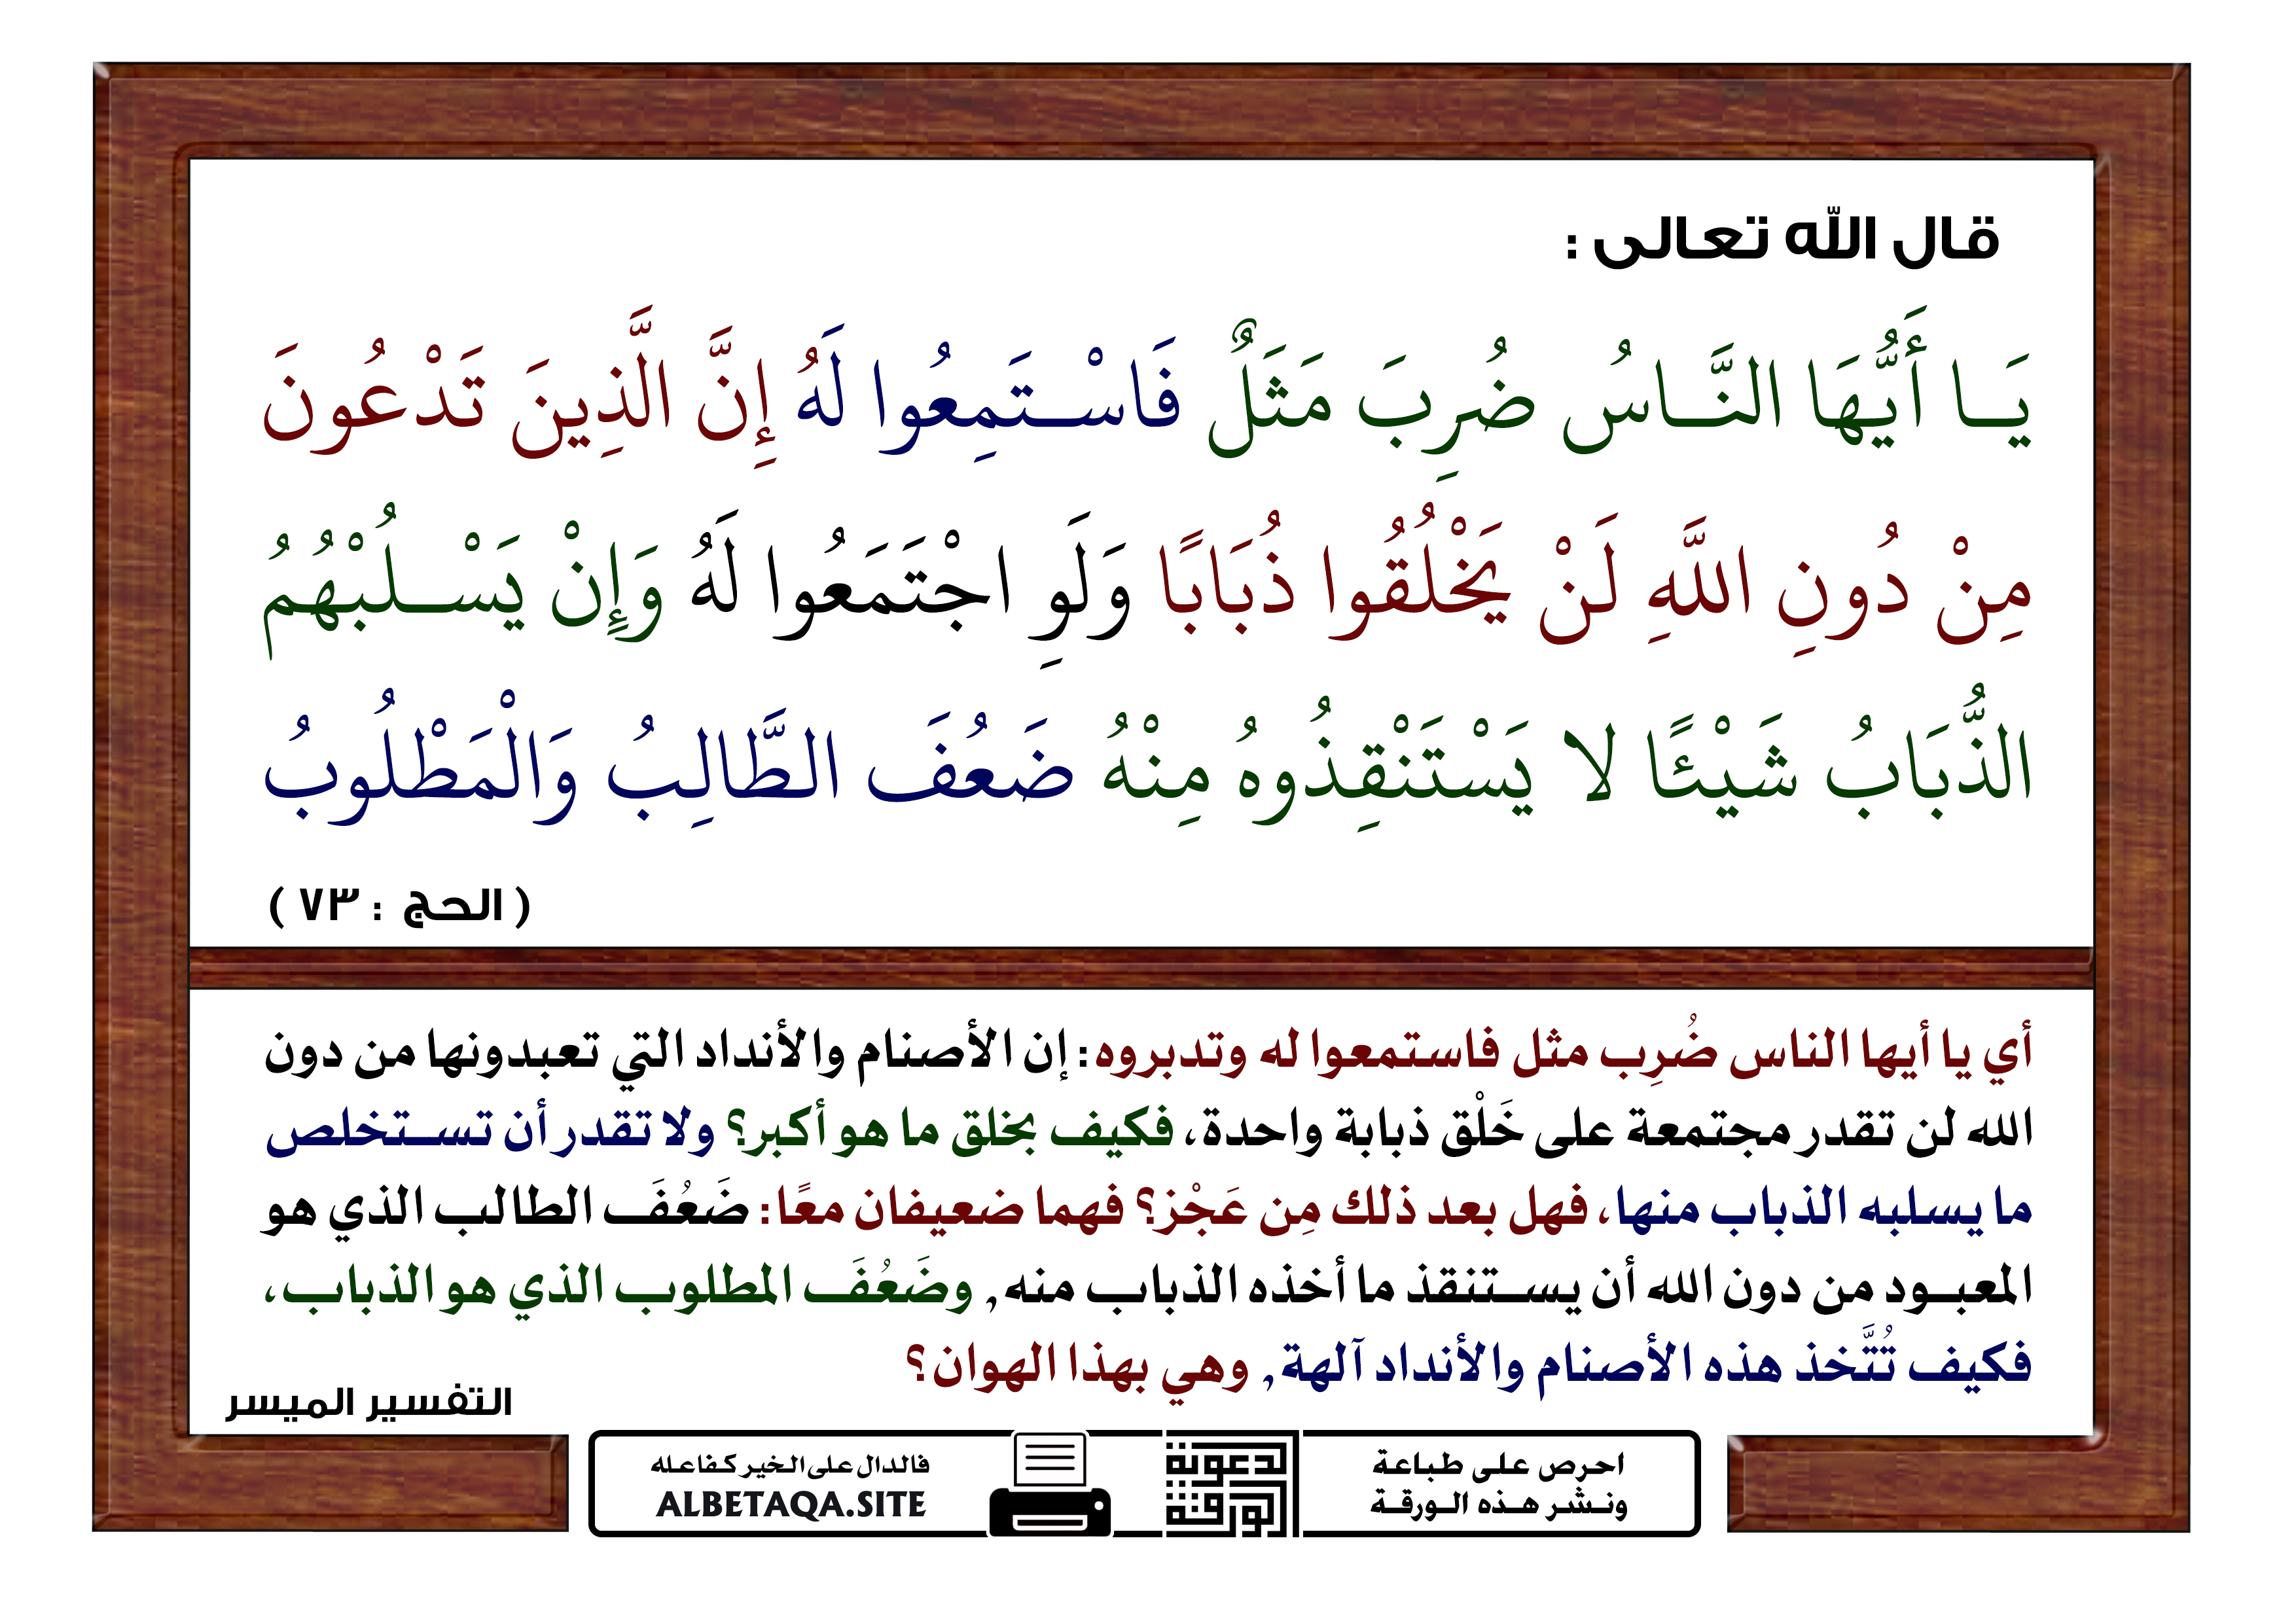 قال الله تعالى :
يَـا أَيُّهَا النَّـاسُ ضُرِبَ مَثَلٌ فَاسْـتَمِعُوا لَهُ إِنَّ الَّذِينَ تَدْعُونَ
مِنْ دُونِ اللَّهِ لَنْ يَخْلُقُوا ذُبَابًا وَلَوِ اجْتَمَعُوا لَهُ وَإِنْ يَسْـلُبْهُمُ
الذُّبَابُ شَيْئًا لا يَسْتَنْقِذُوهُ مِنْهُ ضَعُفَ الطَّالِبُ وَالْمَطْلُوبُ
( الحج : ٧٣ )
أي يا أيها الناس ضُرِب مثل فاستمعوا له وتدبروه: إن الأصنام والأنداد التي تعبدونها من دون
الله لن تقدر مجتمعة على خَلْق ذبابة واحدة، فكيف بخلق ما هو أكبر؟ ولا تقدر أن تسـتخلص
ما يسلبه الذباب منها، فهل بعد ذلك مِن عَجْز؟ فهما ضعيفان معًا: ضَعُفَ الطالب الذي هو
المعبـود من دون الله أن يسـتنقذ ما أخذه الذباب منه, وضَعُفَ المطلوب الذي هو الذباب،
فكيف تُتَّخذ هذه الأصنام والأنداد آلهة, وهي بهذا الهوان؟
التفسير الميسر
احرص على طباعة
ونـشـر هـذه الـورقـة
لدعوتة
الورقة
فالدال على الخير كفاعله
ALBETAQA.SITE